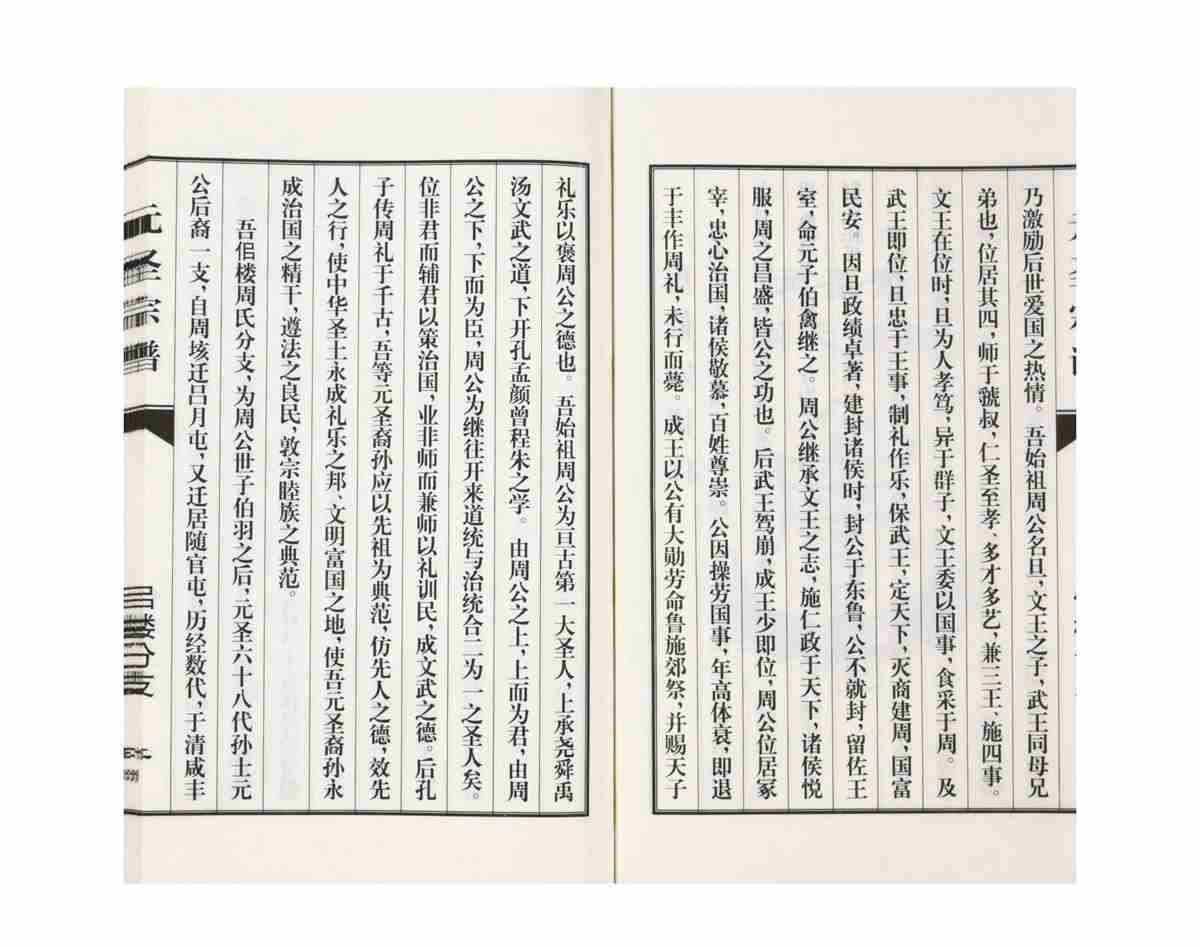 乃激励后世爱国之热情。吾始祖周公名旦，文王之子，武王同母兄
弟也，位居其四，师于虢叔，仁圣至孝、多才多艺，兼三王、施四事。
文王在位时，旦为人孝笃，异于群子，文王委以国事，食采于周。及
武王即位，旦忠于王事，制礼作乐，保武王，定天下，灭商建周，国富
民安 因旦政绩卓著，建封诸侯时，封公于东鲁，公不就封，留佐王
室，命元子伯禽继之。周公继承文王之志，施仁政于天下，诸侯悦
服，周之昌盛，皆公之功也。后武王驾崩，成王少即位，周公位居冢
宰，忠心治国，诸侯敬慕，百姓尊崇。公因操劳国事，年高体衰，即退
于丰作周礼，未行而薨。成王以公有大勋劳命鲁施郊祭，并赐天子
礼乐以褒周公之德也。吾始祖周公为亘古第一大圣人，上承尧舜禹
汤文武之道，下开孔孟颜曾程朱之学。由周公之上，上而为君，由周
公之下，下而为臣，周公为继往开来道统与治统合二为一之圣人矣。
位非君而辅君以策治国，业非师而兼师以礼训民，成文武之德。后孔
子传周礼于千古，吾等元圣裔孙应以先祖为典范，仿先人之德，效先
人之行，使中华圣土永成礼乐之邦、文明富国之地，使吾元圣裔孙永
成治国之精干，遵法之良民，敦宗睦族之典范。
吾侣楼周氏分支，为周公世子伯羽之后，元圣六十八代孙士元
公后裔一支，自周垓迁吕月屯，又迁居随官屯，历经数代，于清咸丰
元圣宗谱
吕楼分支